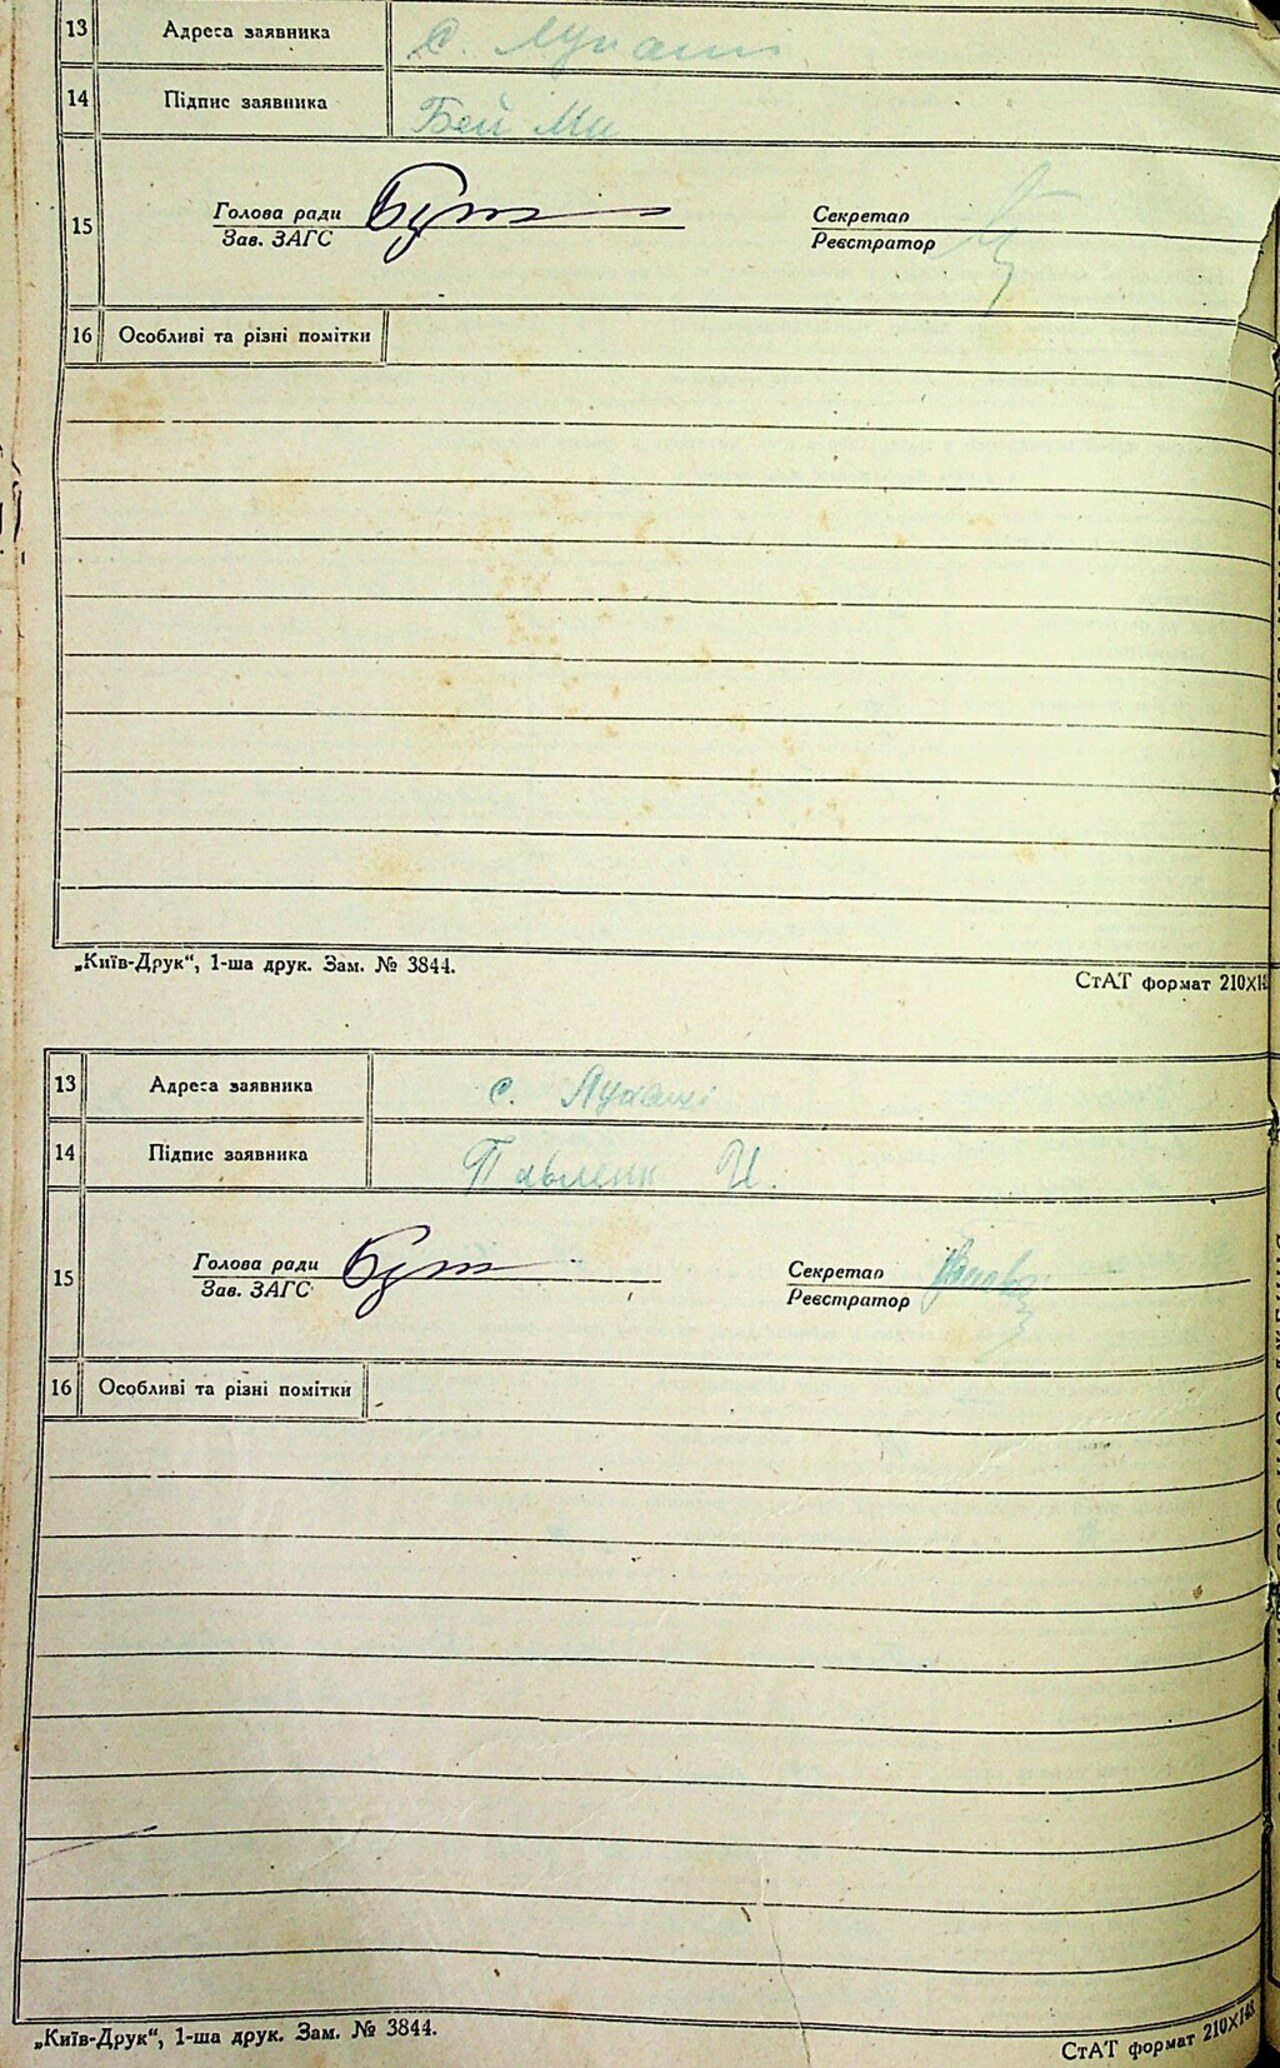 13 Адреса заявника с. Лукаші
14 Підпис заявника Бей Ми
15 Голова ради Секретар
Зав. ЗАГС Реєстратор
16 Особливі та різні помітки
„Київ-Друк“, 1-ша друк. Зам. № 3844.
СтАТ формат 210×14
13 Адреса заявника с. Лукаші
14 Підпис заявника Павленк И.
15 Голова ради Секретар
Зав. ЗАГС Реєстратор
16 Особливі та різні помітки
„Київ-Друк“, 1-ша друк. Зам. № 3844.
СтАТ формат 210×148